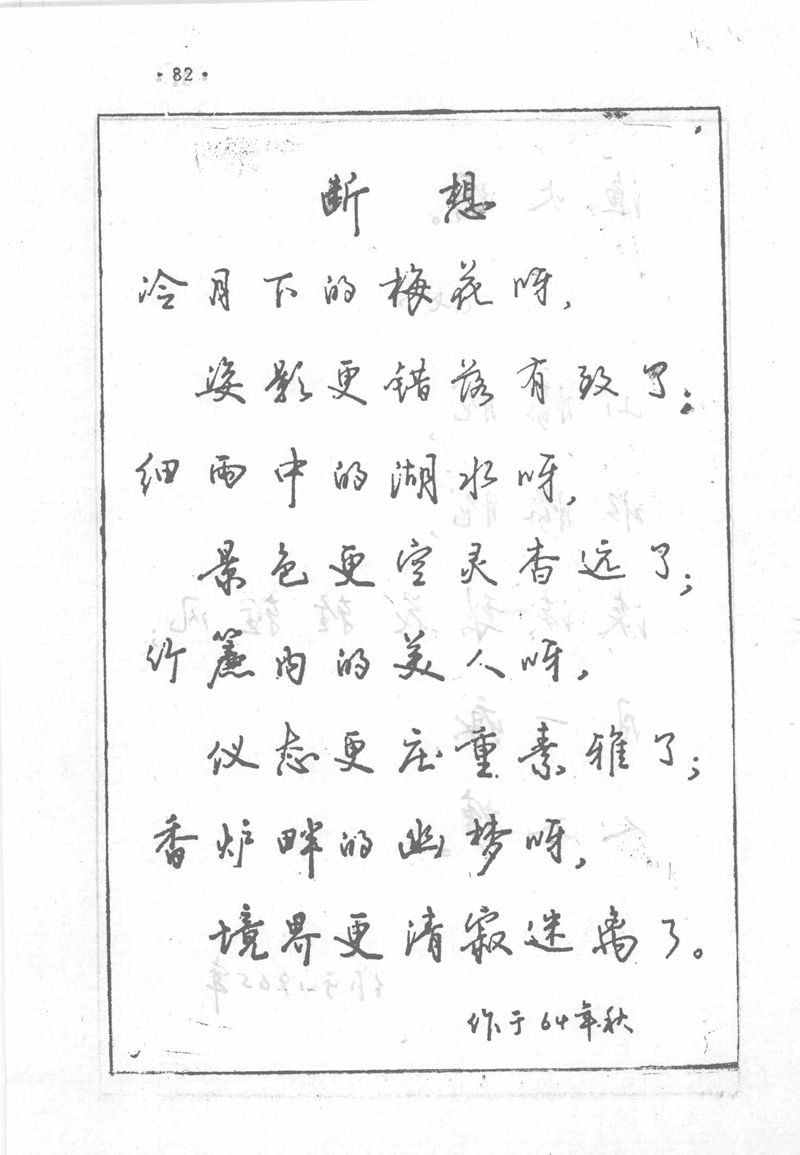 ·82·
断想
冷月下的梅花呀，
姿影更错落有致了；
细雨中的湖水呀，
景色更空灵杳远了；
竹簾内的美人呀，
仪态更庄重素雅了；
香炉畔的幽梦呀，
境界更清寂迷离了。
作于64年秋